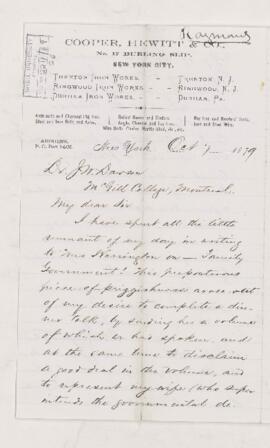 Raymond
COOPER, HEWITT & Co.
No. 17 BURLING SLIP,
NEW YORK CITY.
TRENTON IRON WORKS, - - TRENTON, N. J.
RINGWOOD IRON WORKS, - - RINGWOOD, N. J.
DURHAM IRON WORKS, - - DURHAM, PA.
ADDRESS,
New York Oct 7 1879
Dr J W Dawson
McGill College, Montreal.
My dear Sir
I have spent all the little
remnant of my day in writing
to Mrs Harrington on - Family
Government! This preposterous
piece of priggishness arose out
of my desire to complete a din-
ner talk, by sending her a volume
of which we had spoken, and
at the same time to disclaim
a good deal in the volume, and
to represent my wife (who super
intends the governmental de-